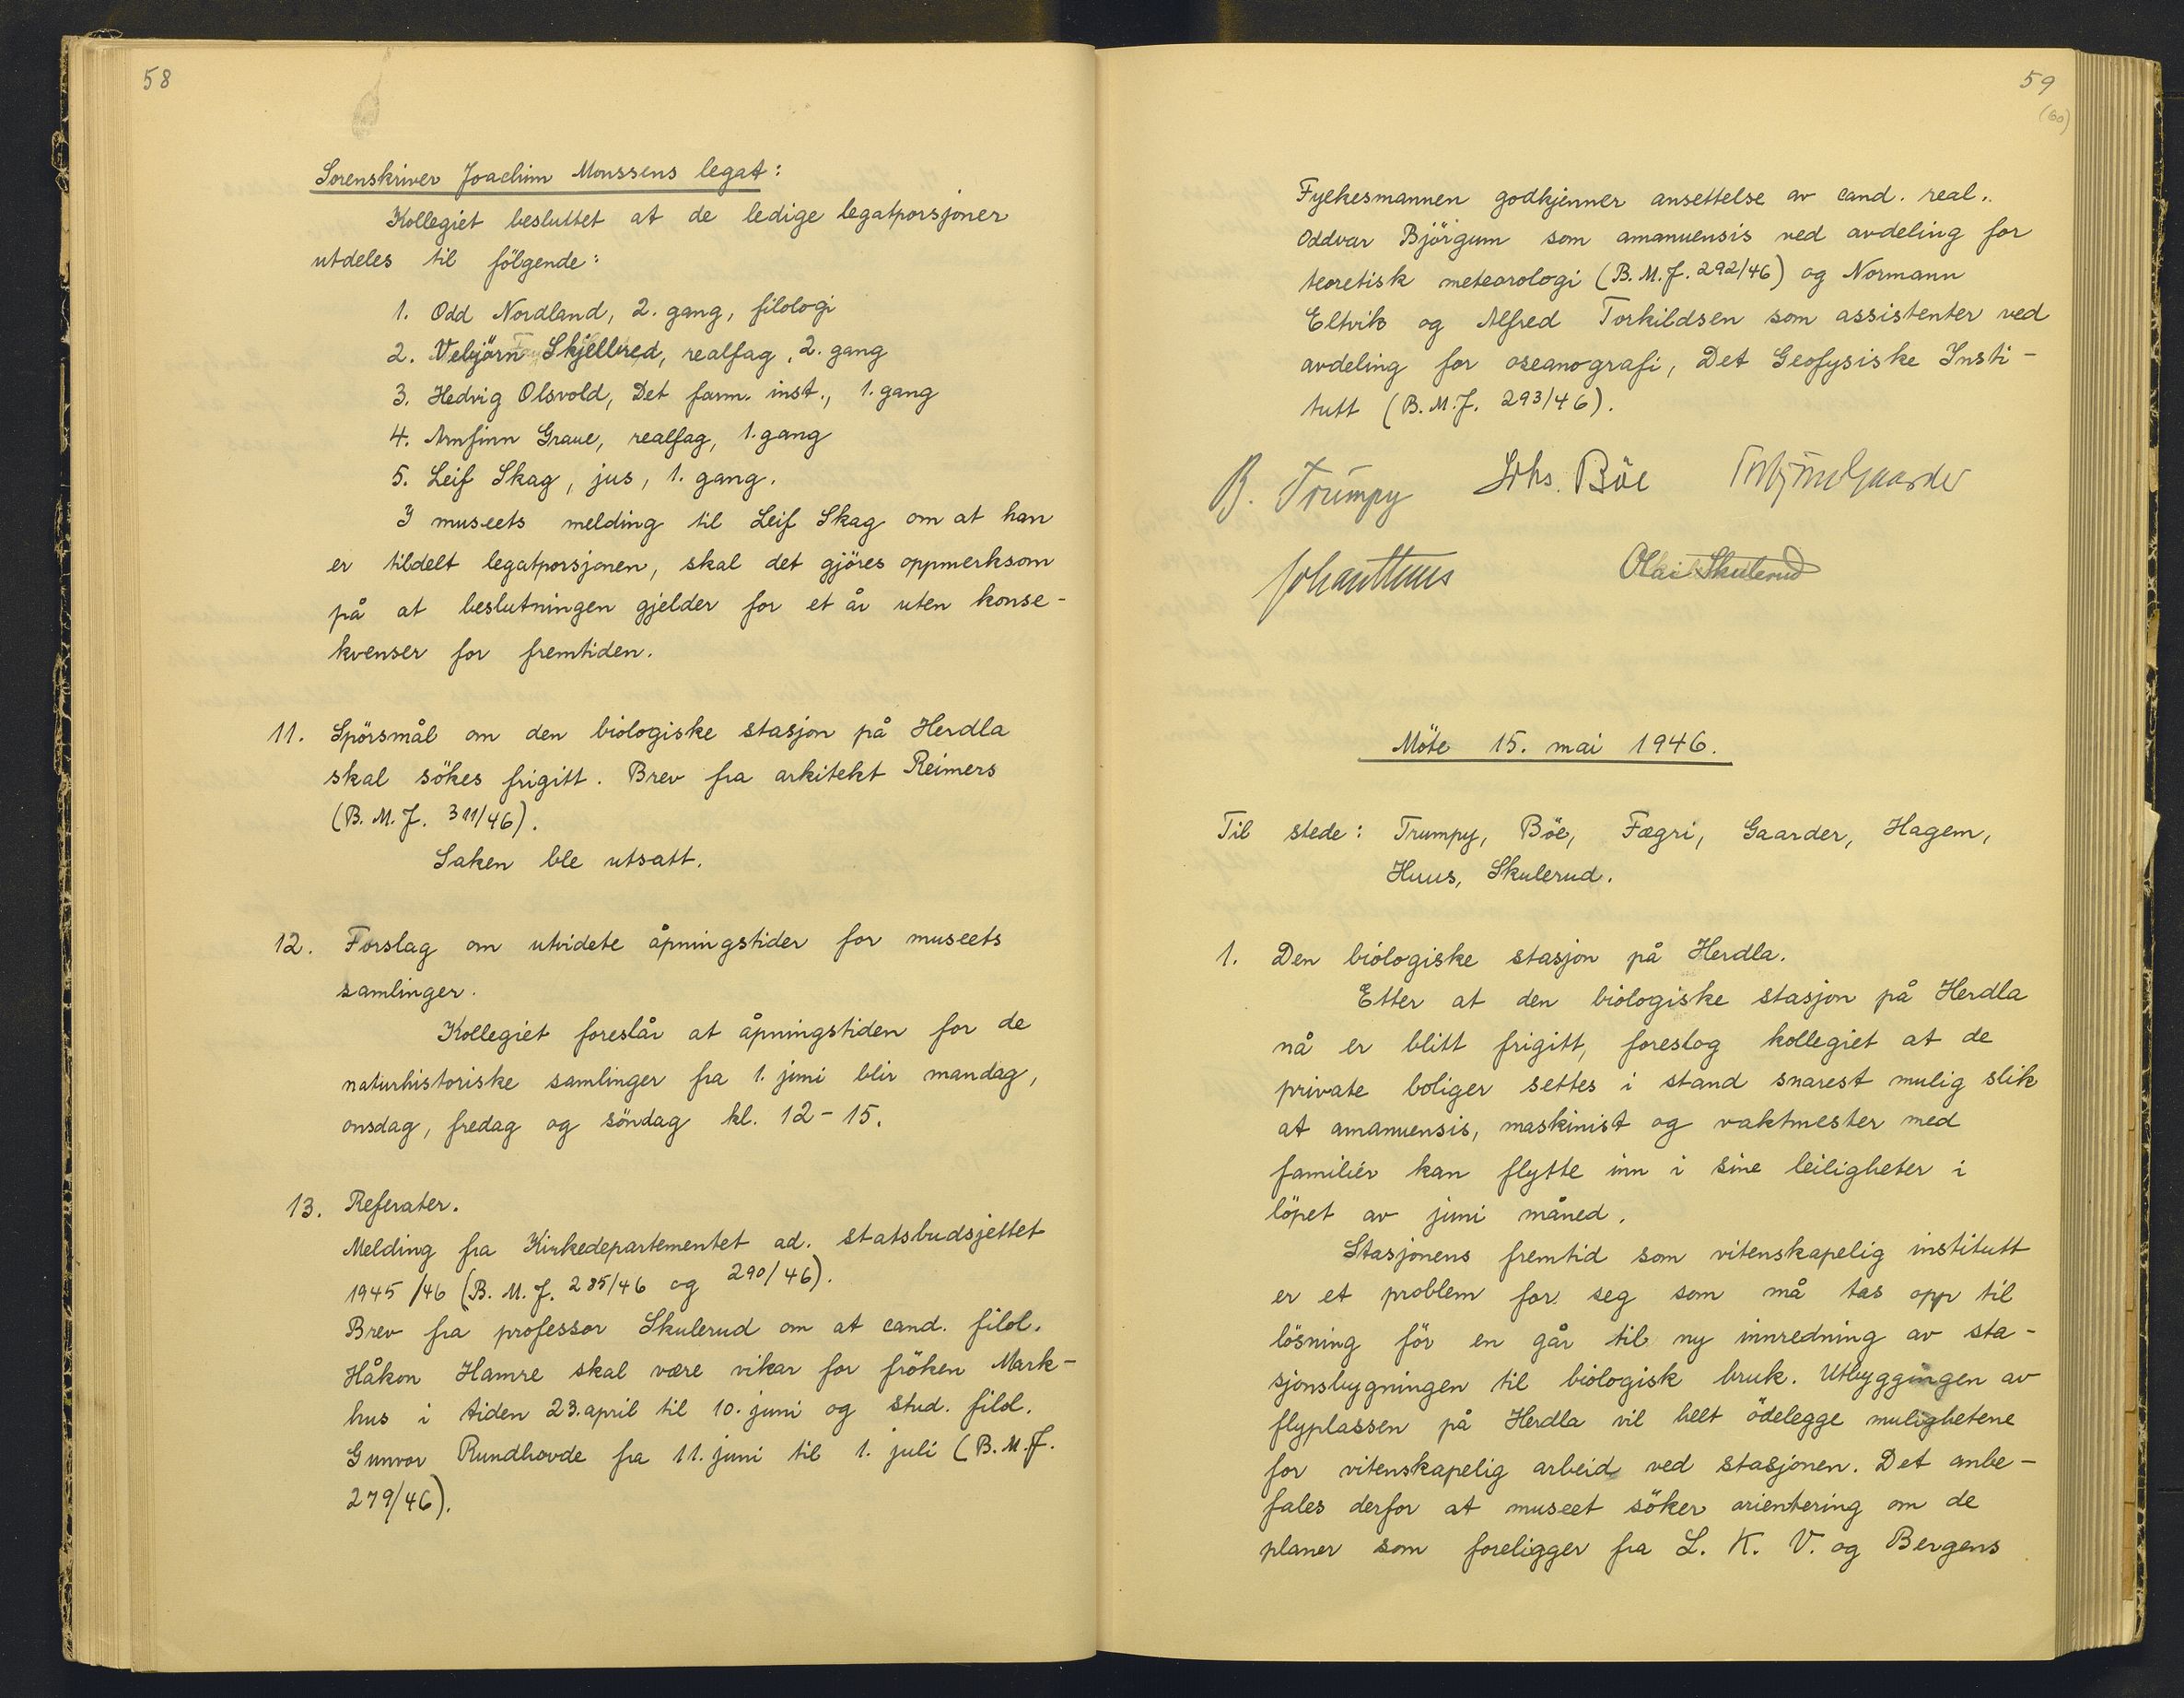 58
Sorenskriver Joachim Monssens legat:
Kollegiet besluttet at de ledige legatporsjoner
utdeles til fölgende:
1. Odd Nordland, 2. gang, filologi
2. Vebjörn Skjelbred, realfag, 2. gang
3. Hedvig Olsvold, Det farm. inst., 1. gang
4. Arnfinn Graue, realfag, 1. gang
5. Leif Skag, jus, 1. gang.
I museets melding til Leif Skag om at han
er tildelt legatporsjonen, skal det gjöres oppmerksom
på at beslutningen gjelder for et år uten konse-
kvenser for fremtiden.
11. Spörsmål om den biologiske stasjon på Herdla
skal sökes frigitt. Brev fra arkitekt Reimers
(B. M. J. 311/46).
Saken ble utsatt.
12. Forslag om utvidete åpningstider for museets
samlinger.
Kollegiet foreslår at åpningstiden for de
naturhistoriske samlinger fra 1. juni blir mandag,
onsdag, fredag og söndag kl. 12-15.
13. Referater.
Melding fra Kirkedepartementet ad. statsbudsjettet
1945/46 (B. M. J. 285/46 og 290/46).
Brev fra professor Skulerud om at cand. filol.
Håkon Hamre skal være vikar for fröken Mark-
hus i tiden 23. april til 10. juni og stud. filol.
Gunvor Rundhovde fra 11. juni til 1. juli (B. M. J.
279/46).
59
(60)
Fylkesmannen godkjenner ansettelse av cand. real.
Oddvar Björgum som amanuensis ved avdeling for
teoretisk meteorologi (B. M. J. 292/46) og Normann
Eltvik og Alfred Torkildsen som assistenter ved
avdeling for oseanografi, Det Geofysiske Insti-
tutt (B. M. J. 293/46).
B. Trumpy Johs. Böe Torbjörn Gaarder
Johan Huus Olai Skulerud
Möte 15. mai 1946.
Til stede: Trumpy, Böe, Fægri, Gaarder, Hagem,
Huus, Skulerud.
1. Den biologiske stasjon på Herdla.
Etter at den biologiske stasjon på Herdla
nå er blitt frigitt, foreslog kollegiet at de
private boliger settes i stand snarest mulig slik
at amanuensis, maskinist og vaktmester med
familier kan flytte inn i sine leiligheter i
löpet av juni måned.
Stasjonens fremtid som vitenskapelig institutt
er et problem for seg som må tas opp til
lösning för en går til ny innredning av sta-
sjonsbygningen til biologisk bruk. Utbyggingen av
flyplassen på Herdla vil helt ödelegge mulighetene
for vitenskapelig arbeid ved stasjonen. Det anbe-
fales derfor at museet söker orientering om de
planer som foreligger fra L. K. V. og Bergens